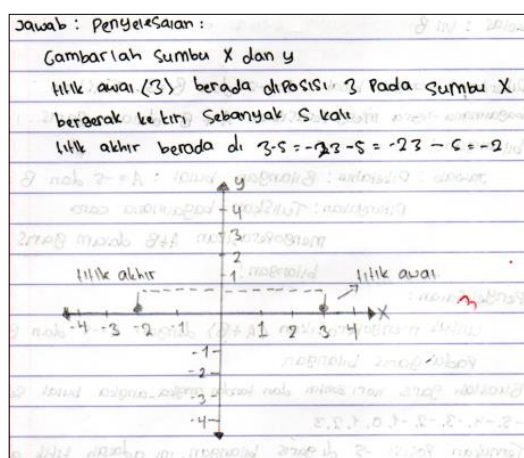 Jawab : Penyelesaian :
Gambarlah Sumbu X dan y
titik awal (3) berada diposisi 3 Pada Sumbu X
bergerak ke kiri Sebanyak 5 kali
titik akhir berada di 3-5 = -23-5 = -23 - 5 = -2
y
4
3
2
titik akhir 1 titik awal
3
-4 -3 -2 1 1 2 3 4 X
-1
-2
-3
-4